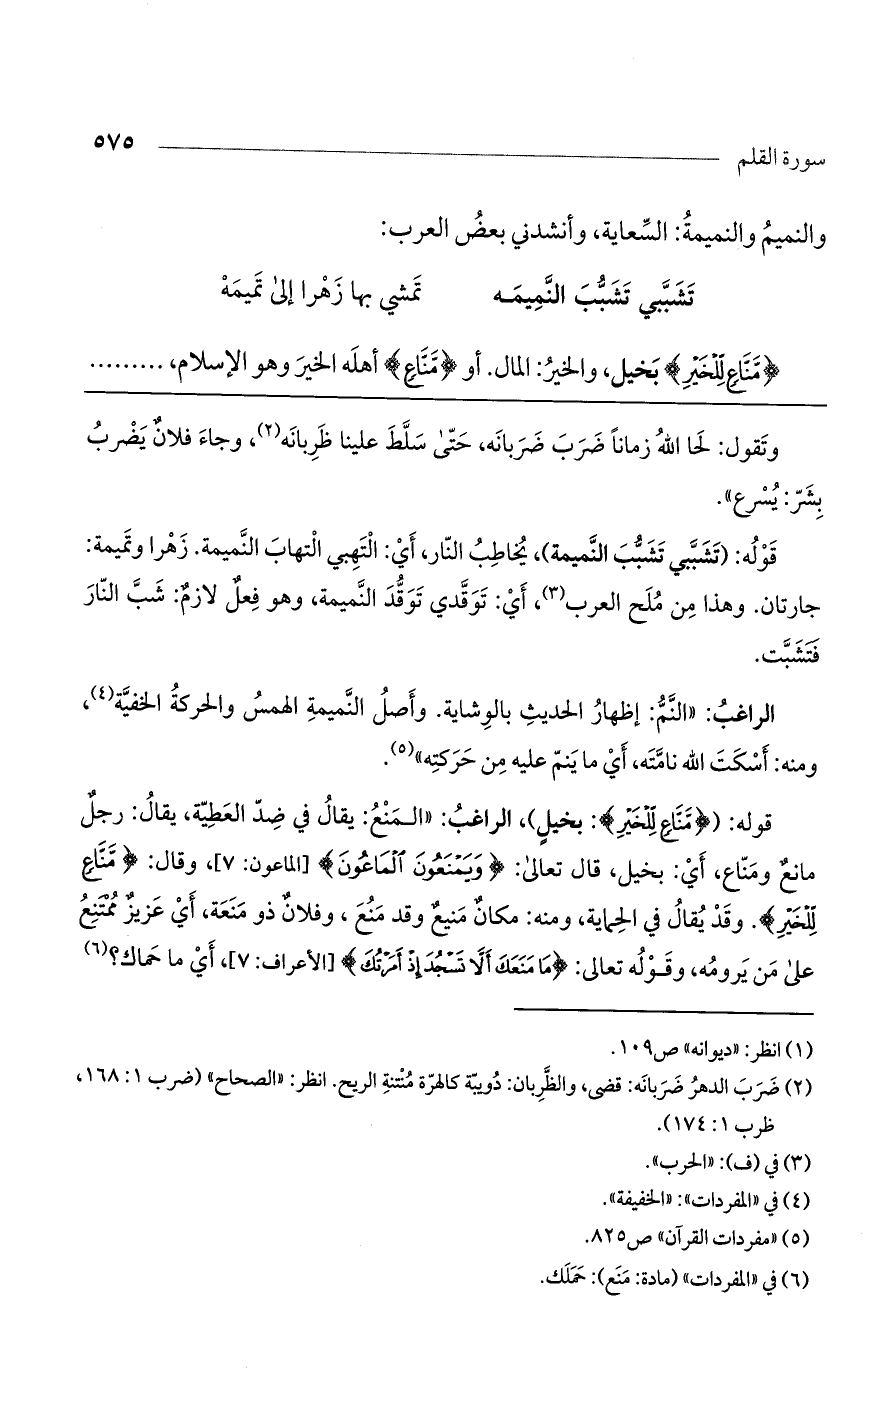 سورة القلم ٥٧٥
والنميمُ والنميمةُ: السِّعاية، وأنشدني بعضُ العرب:
تَشَبَّبي تَشَبُّبَ النَّمِيمَـه تَمشي بها زَهْرا إلىٰ تَمِيمَهْ
﴿مَّنَّاعٍ لِّلْخَيْرِ﴾ بَخيل، والخيرُ: المال. أو ﴿مَّنَّاعٍ﴾ أهلَه الخيرَ وهو الإسلام، .........
وتَقول: لَحَا اللهُ زماناً ضَرَبَ ضَرَبانَه، حَتّىٰ سَلَّطَ علينا ظَرِبانَه(٢)، وجاءَ فلانٌ يَضْرِبُ
بِشَرّ: يُسْرع».
قَوْلُه: (تَشَبَّبي تَشَبُّبَ النَّميمة)، يُخاطِبُ النار، أيْ: الْتَهِبي الْتهابَ النَّميمة. زَهْرا وتَميمة:
جارتان. وهذا مِن مُلَح العرب(٣)، أيْ: تَوَقَّدي تَوَقُّدَ النَّميمة، وهو فِعلٌ لازمٌ: شَبَّ النّارَ
فَتَشَبَّبت.
الراغبُ: «النَّمُّ: إظهارُ الحديثِ بالوِشاية. وأَصلُ النَّميمةِ الهمسُ والحركةُ الخفيَّة(٤)،
ومنه: أَسْكَتَ الله نامَّتَه، أيْ ما يَنمّ عليه مِن حَرَكتِه»(٥).
قوله: (﴿مَّنَّاعٍ لِّلْخَيْرِ﴾: بخيلٍ)، الراغبُ: «الـمَنْعُ: يقالُ في ضِدّ العَطِيّة، يقالُ: رجلٌ
مانعٌ ومَنّاع، أيْ: بخيل، قال تعالىٰ: ﴿وَيَمْنَعُونَ ٱلْمَاعُونَ﴾ [الماعون: ٧]، وقال: ﴿مَّنَّاعٍ
لِّلْخَيْرِ﴾. وقَدْ يُقالُ في الحِماية، ومنه: مكانٌ مَنيعٌ وقد مَنُعَ، وفلانٌ ذو مَنَعَة، أيْ عَزيزٌ مُمْتَنِعُ
علىٰ مَن يَرومُه، وقَـوْلُه تعالى: ﴿مَا مَنَعَكَ أَلَّا تَسْجُدَ إِذْ أَمَرْتُكَ﴾ [الأعراف: ٧]، أيْ ما حَماك؟(٦)
(١) انظر: «ديوانه» ص١٠٩.
(٢) ضَرَبَ الدهرُ ضَرَبانَه: قضى، والظَّرِبان: دُويبّة كالهرّة مُنْتنةِ الريح. انظر: «الصحاح» (ضرب ١: ١٦٨،
ظرب ١: ١٧٤).
(٣) في (ف): «الحرب».
(٤) في «المفردات»: «الخفيفة».
(٥) «مفردات القرآن» ص٨٢٥.
(٦) في «المفردات» (مادة: مَنَع): حَمَلَك.